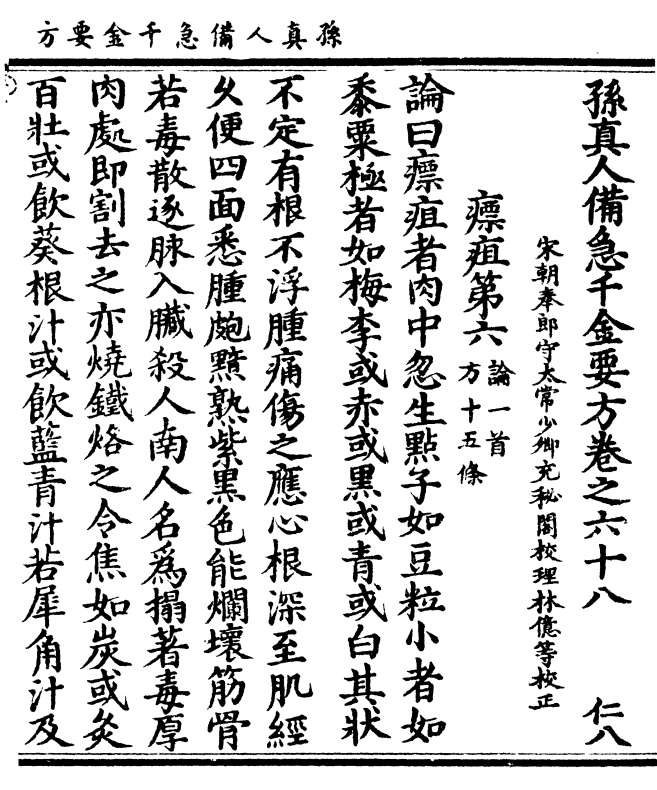 孫真人備急千金要方
孫真人備急千金要方卷之六十八　仁八
宋朝奉郎守太常少卿充秘閣校理林億等校正
瘭疽第六論一首方十五條
論曰瘭疽者肉中忽生點子如豆粒小者如
黍粟極者如梅李或赤或黑或青或白其狀
不定有根不浮腫痛傷之應心根深至肌經
久便四面悉腫皰黯熟紫黑色能爛壞筋骨
若毒散逐脉入臟殺人南人名為搨著毒厚
肉處即割去之亦燒鐵烙之令焦如炭或灸
百壯或飲葵根汁或飲藍青汁若犀角汁及